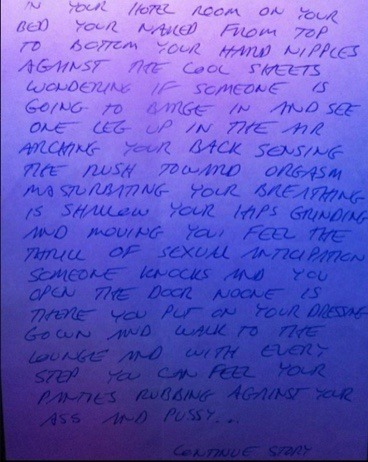 IN YOUR HOTEL ROOM ON YOUR
BED YOUR NAKED FROM TOP
TO BOTTOM YOUR HARD NIPPLES
AGAINST THE COOL SHEETS
WONDERING IF SOMEONE IS
GOING TO BARGE IN AND SEE
ONE LEG UP IN THE AIR
ARCHING YOUR BACK SENSING
THE RUSH TOWARD ORGASM
MASTURBATING YOUR BREATHING
IS SHALLOW YOUR HIPS GRINDING
AND MOVING YOU FEEL THE
THRILL OF SEXUAL ANTICIPATION
SOMEONE KNOCKS AND YOU
OPEN THE DOOR NOONE IS
THERE YOU PUT ON YOUR DRESSING
GOWN AND WALK TO THE
LOUNGE AND WITH EVERY
STEP YOU CAN FEEL YOUR
PANTIES RUBBING AGAINST YOUR
ASS AND PUSSY...
CONTINUE STORY